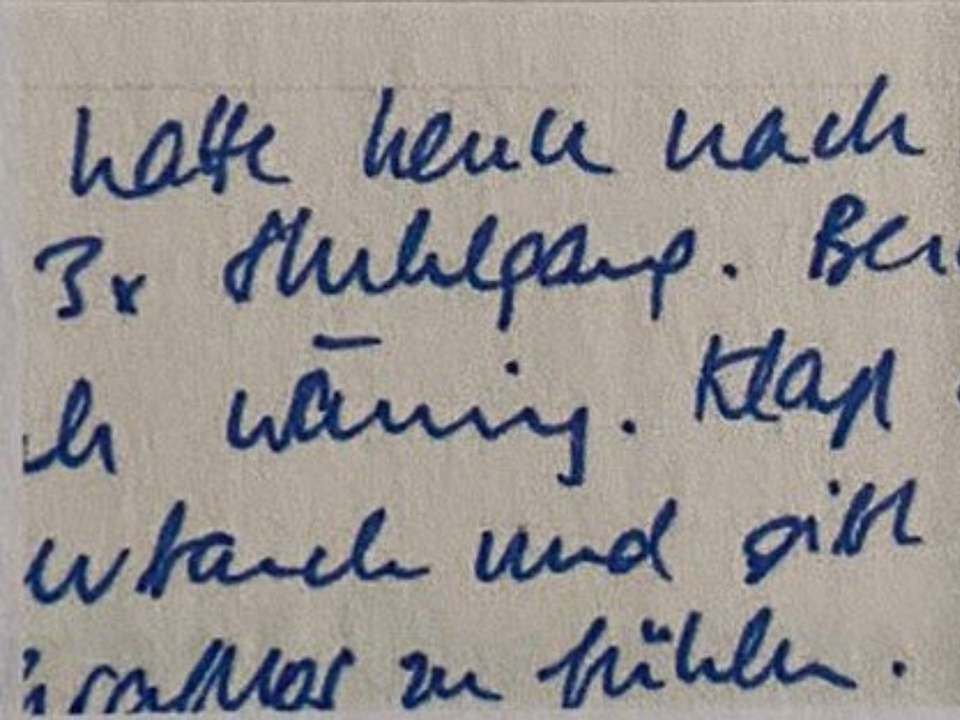 hatte heute nach
3x Stuhlgang. Be
ch wässrig. Klagt
und gibt
zu fühlen.